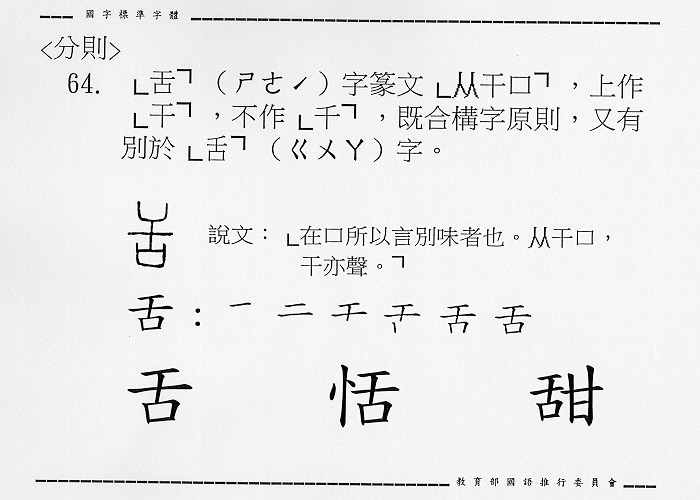 國字標準字體
<分則>
64. ﹂舌﹁（ㄕㄜˊ）字篆文﹂从干口﹁，上作
﹂干﹁，不作﹂千﹁，既合構字原則，又有
別於﹂舌﹁（ㄍㄨㄚ）字。
舌 說文：﹂在口所以言別味者也。从干口，
干亦聲。﹁
舌：一 二 干 舌 舌
舌 恬 甜
教育部國語推行委員會